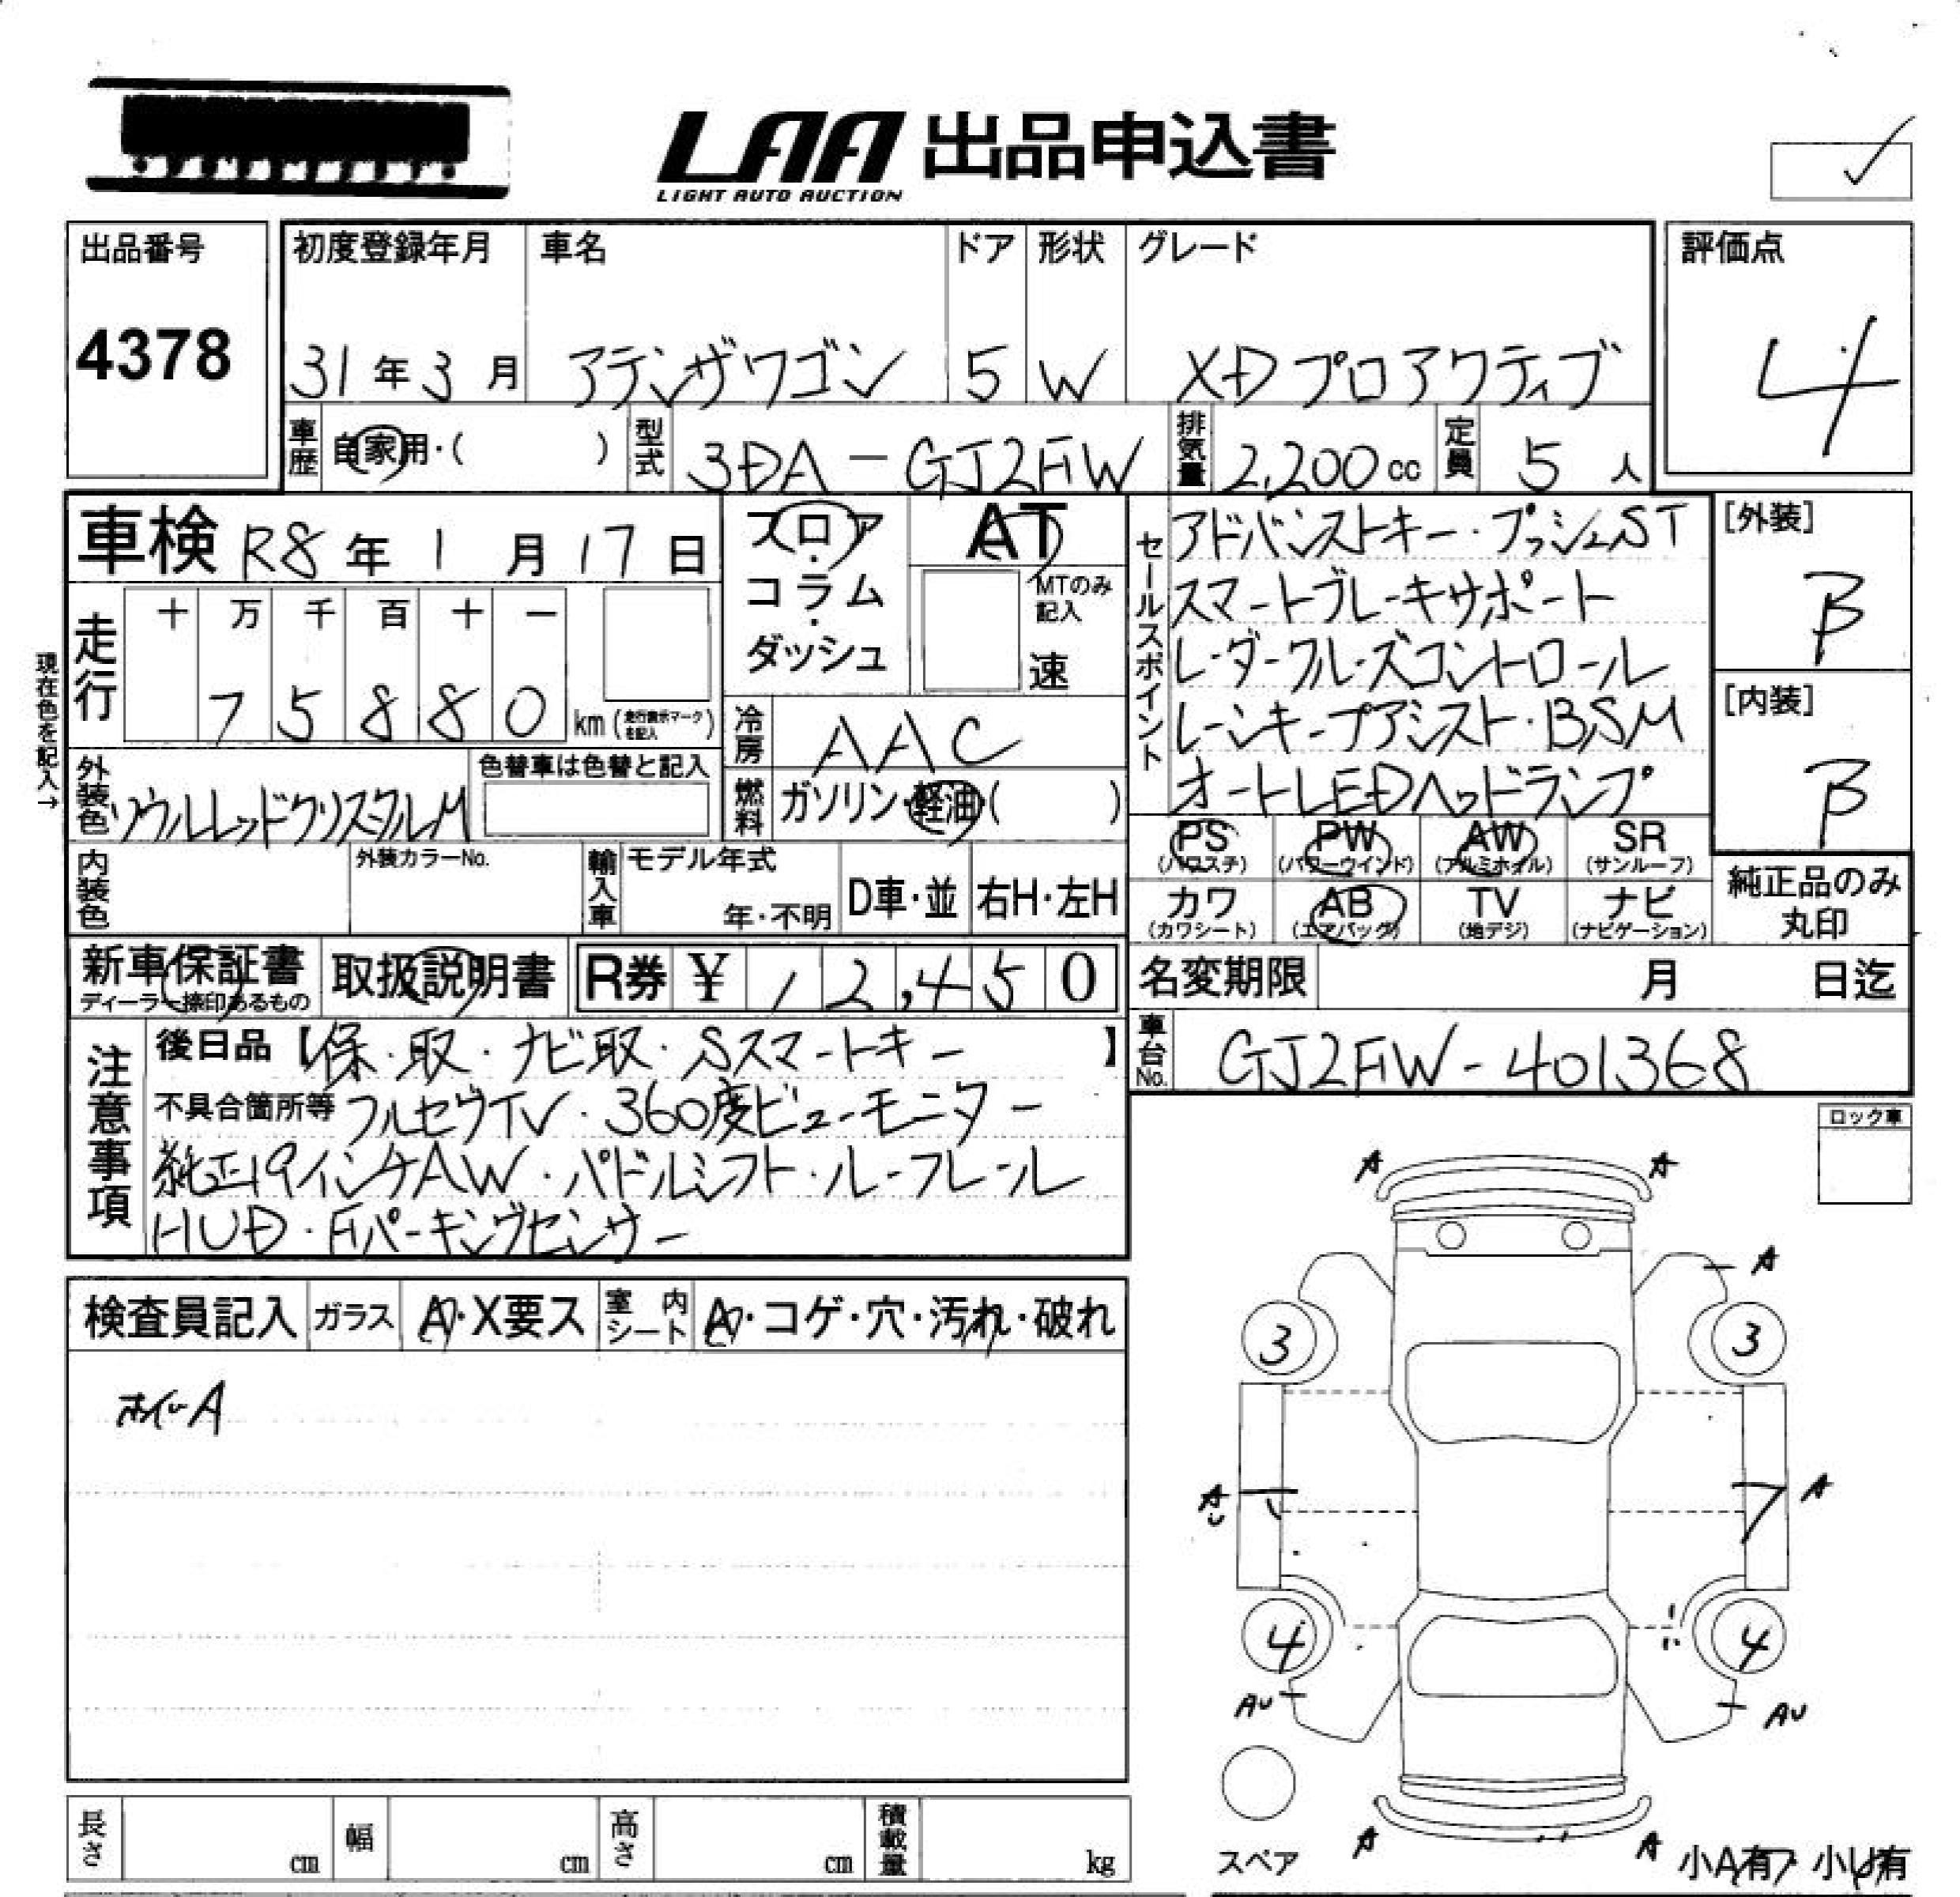 LAA 出品申込書
LIGHT AUTO AUCTION
出品番号
4378
初度登録年月 車名 ドア 形状 グレード
31年3月 アテンザワゴン 5 W XDプロアクティブ
評価点
4
車歴 自家用・( ) 型式 3DA-GJ2FW 排気量 2,200cc 定員 5人
車検 R8年1月17日
フロア・コラム・ダッシュ
AT
MTのみ記入
速
セールスポイント
アドバンストキー・プッシュST
スマートブレーキサポート
レーダークルーズコントロール
レーンキープアシスト・BSM
オートLEDヘッドランプ
[外装]
B
[内装]
B
現在色を記入→
走行 十 万 千 百 十 一
75880 km (走行表示マークを記入)
冷房 AAC
外装色 ソウルレッドクリスタルM 色替車は色替と記入
燃料 ガソリン・軽油( )
PS (パワステ) PW (パワーウインド) AW (アルミホイル) SR (サンルーフ)
カワ (カワシート) AB (エアバッグ) TV (地デジ) ナビ (ナビゲーション)
純正品のみ丸印
内装色 外装カラーNo. 輸入車 モデル年式 年・不明 D車・並 右H・左H
新車保証書 ディーラー捺印あるもの 取扱説明書 R券 ¥12,450
名変期限 月 日迄
車台No. GJ2FW-401368
注意事項
後日品【保・取・ナビ取・Sスマートキー】
不具合箇所等 フルセグTV・360度ビューモニター
純正19インチAW・パドルシフト・ルーフレール
HUD・Fパーキングセンサー
ロック車
検査員記入 ガラス A・X要ス 室内シート A・コゲ・穴・汚れ・破れ
ホイールA
A A
A
3 3
A A
4 4
AU AU
A A
スペア
小A有・小U有
長さ cm 幅 cm 高さ cm 積載量 kg